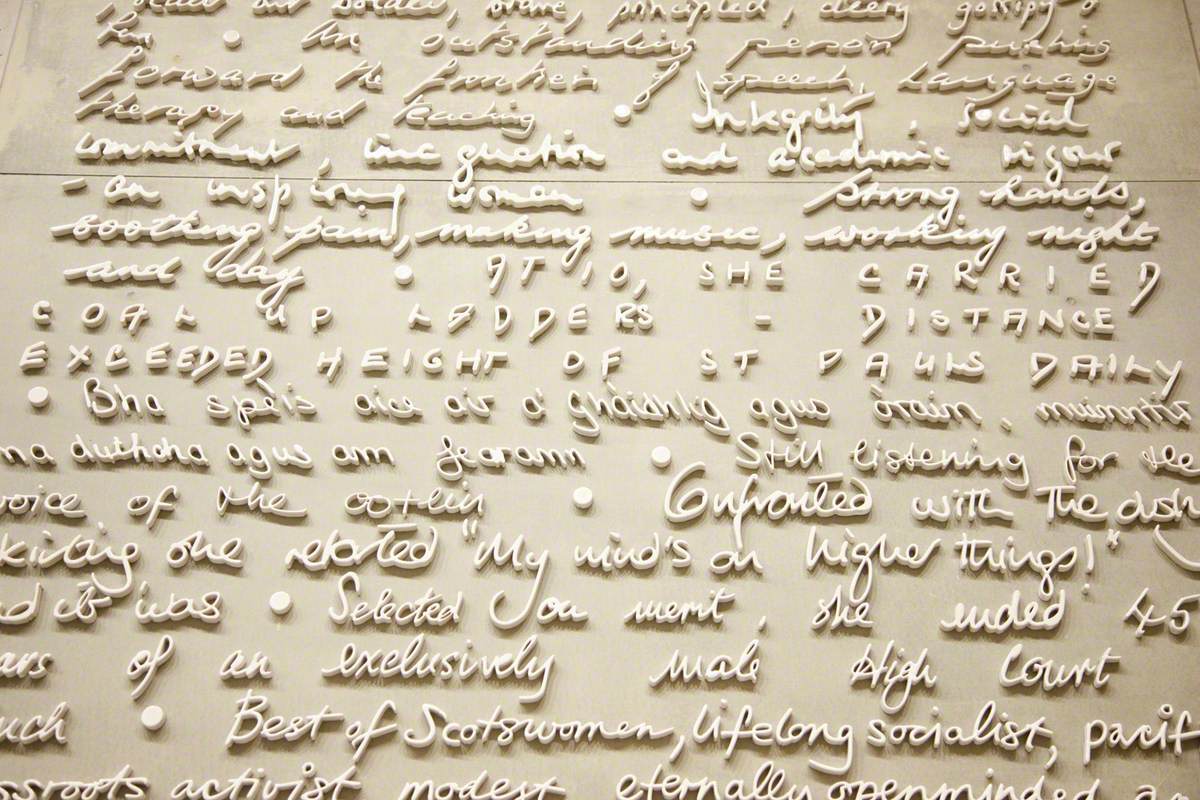 bolder, brave, principled, deeply gossipy
fun • An outstanding person pushing
forward the frontiers of speech, language
therapy and teaching • Integrity, social
commitment, and academic rigour
- an inspiring women • Strong hands,
soothing pain, making music, working night
and day • AT 10, SHE CARRIED
COAL UP LADDERS - DISTANCE
EXCEEDED HEIGHT OF ST PAULS DAILY
• Bha spèis aice air a' Ghàidhlig agus òrain, muinntir
na dùthcha agus am fearann • Still listening for the
voice of the • Confronted with the dish
she retorted "My mind's on higher things!"
it was • Selected on merit, she ended 45
of an exclusively male High Court
• Best of Scotswomen, lifelong socialist, pacif
activist modest eternally openminded